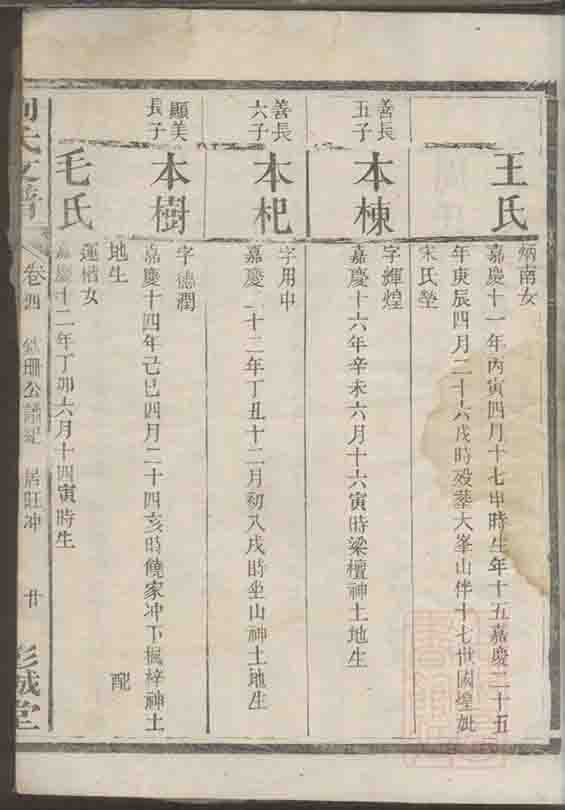 王氏
炳南女
嘉慶十一年丙寅四月十七申時生年十五嘉慶二十五
年庚辰四月二十六戌時殁葬大峯山伴十七世國煌妣
宋氏塋
善長
五子
本棟
字輝煌
嘉慶十六年辛未六月十六寅時梁檀神土地生
善長
六子
本杞
字用中
嘉慶二十二年丁丑十二月初八戌時坐山神土地生
顯美
長子
本樹
字德潤
嘉慶十四年己巳四月二十四亥時饒家冲下楓梓神土
地生 配
毛氏
蓮楷女
嘉慶十二年丁卯六月十四寅時生
劉氏支譜 卷四 公 居旺冲 廿 彭城堂